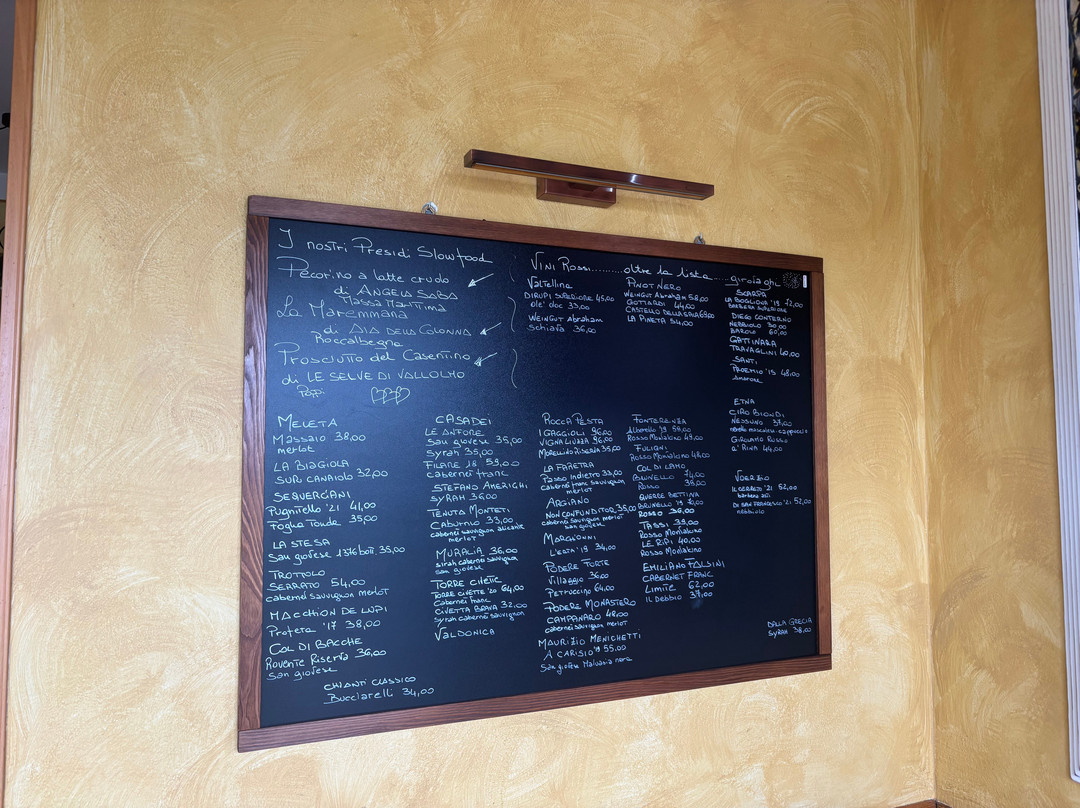 I nostri Presidi Slowfood
Pecorino a latte crudo
di ANGELA SABA
Massa Marittima
La Maremmana
di AIA DELLA COLONNA
Roccalbegna
Prosciutto del Casentino
di LE SELVE DI VALLOLMO
Poppi
VINI ROSSI......... oltre la lista ....
Valtellina
DIRUPI SUPERIORE 45,00
Olè doc 33,00
WEINGUT Abraham
Schiava 36,00
PINOT NERO
WEINGUT Abraham 58,00
GOTTARDI 44,00
CASTELLO DELLA SALA 69,00
LA PINETA 54,00
SCARPA
LA BOGLIONA '19 72,00
BARBERA SUPERIORE
DIEGO CONTERNO
NEBBIOLO 30,00
BAROLO 60,00
GATTINARA
TRAVAGLINI 40,00
SANTI
PROEMIO '15 48,00
amarone
ETNA
CIRO BIONDI
NESSUNO 37,00
nerello mascalese cappuccio
GIROLAMO RUSSO
A' RINA 44,00
VOERZIO
IL CERRETO '21 52,00
barbera asti
DI SAN FRANCESCO '21 52,00
nebbiolo
DALLA GRECIA
SYRAH 38,00
MELETA
Massaio 38,00
merlot
LA BIAGIOLA
SUR CANAIOLO 32,00
SEQUERCIANI
Pugnitello '21 41,00
Foglia Tonda 35,00
LA STESA
San giovese 1376 bott. 35,00
TROTTOLO
SERRATO 54,00
cabernet sauvignon merlot
MACCHION DE LUPI
Profeta '17 38,00
COL DI BACCHE
Rovente Riserva 36,00
San giovese
CHIANTI CLASSICO
Bucciarelli 34,00
CASADEI
LE ANFORE
San giovese 35,00
Syrah 35,00
FILARE 18 59,00
cabernet franc
STEFANO AMERIGHI
SYRAH 36,00
TENUTA MONTETI
CABURNIO 33,00
cabernet sauvignon alicante
merlot
MURALIA 36,00
sirah cabernet sauvignon
san giovese
TORRE CIVETTE
TORRE CIVETTE '20 64,00
Cabernet franc
CIVETTA BRAVA 32,00
Syrah cabernet sauvignon
VALDONICA
ROCCAPESTA
I GAGGIOLI 96,00
VIGNA LIUZZA 96,00
MORELLINO RISERVA 35,00
LA FARETRA
Passo Indietro 33,00
cabernet franc sauvignon
merlot
ARGIANO
NON CONFUNDITUR 35,00
cabernet sauvignon merlot
san giovese
MORGIONNI
L'ESTA '19 34,00
PODERE FORTE
Villaggio 36,00
Petruccino 64,00
PODERE MONASTERO
CAMPANARO 48,00
cabernet sauvignon merlot
MAURIZIO MENICHETTI
A CARISIO '19 55,00
San giovese Malvasia nera
FONTERENZA
Alberello '19 54,00
Rosso Montalcino 49,00
FULIGNI
Rosso Montalcino 48,00
COL DI LAMO
BRUNELLO 74,00
ROSSO 38,00
QUERCE BETTINA
BRUNELLO '19 70,00
ROSSO 36,00
TASSI 39,00
Rosso Montalcino
LE RIPI 40,00
Rosso Montalcino
EMILIANO FALSINI
CABERNET FRANC
LIMITE 62,00
IL Debbio 37,00